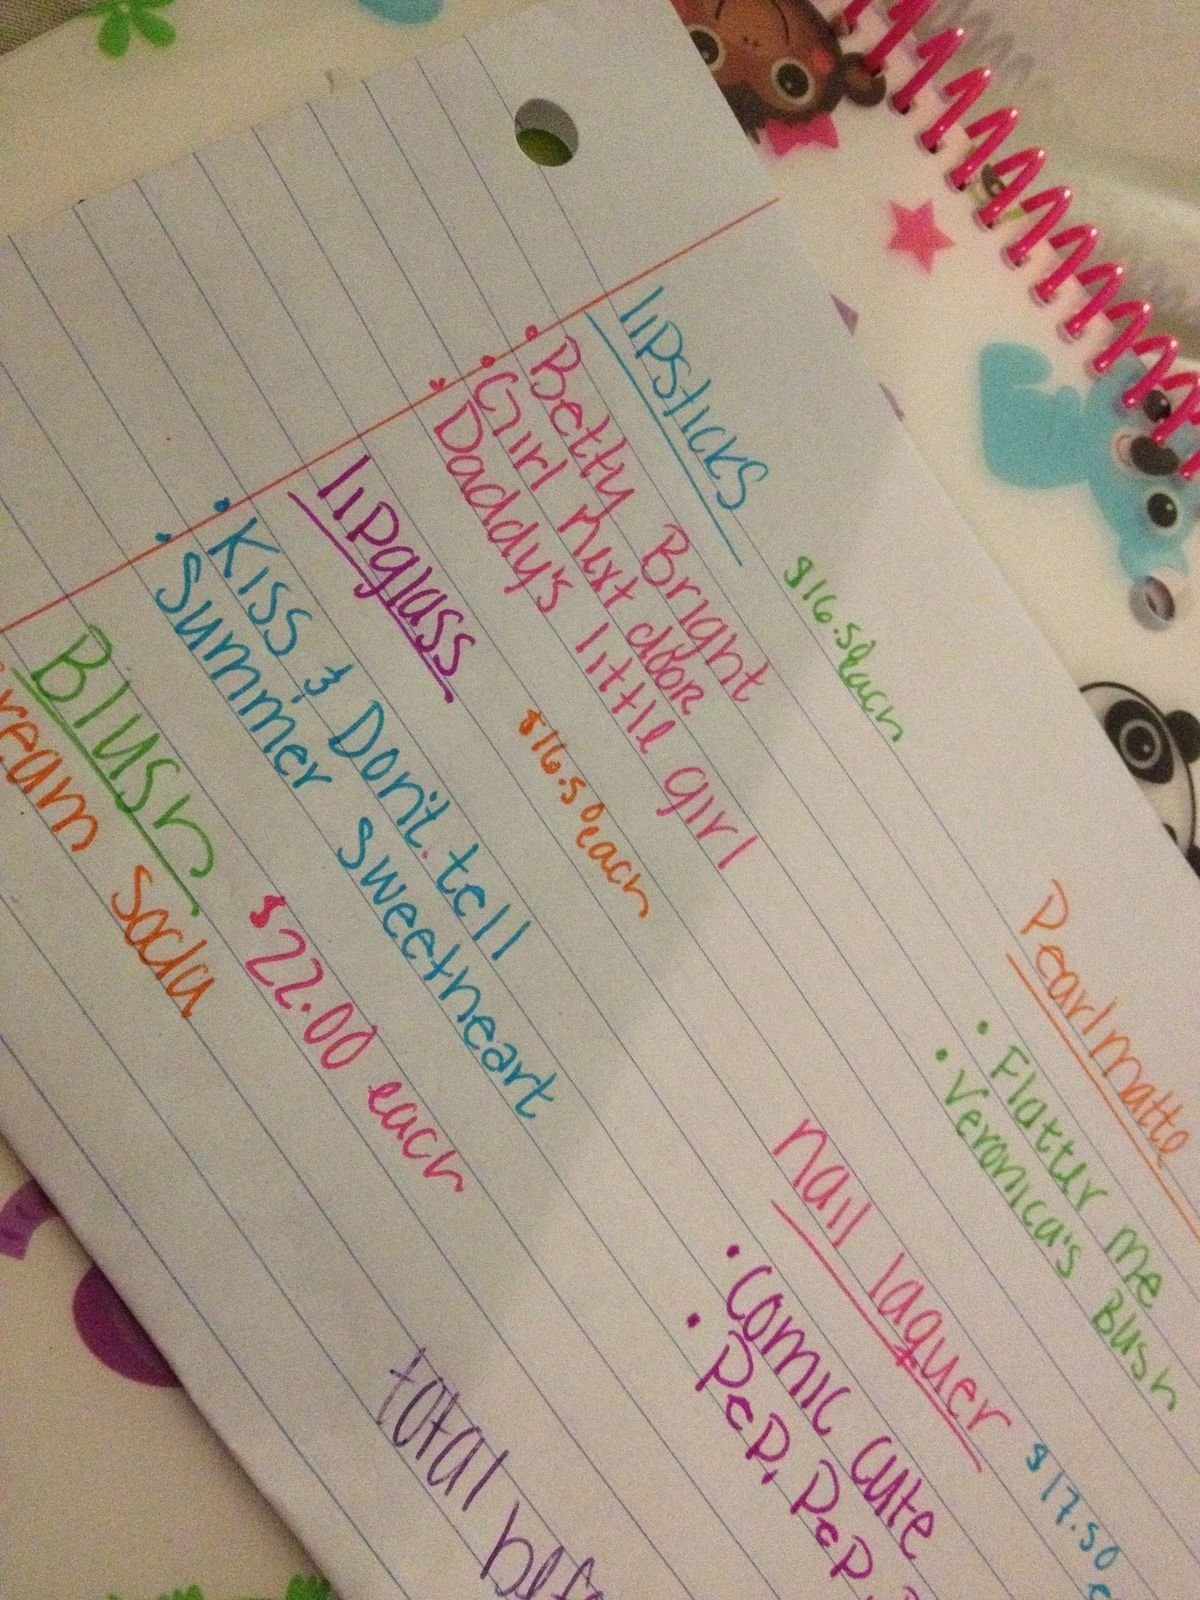 lipsticks
$16.50 each
Betty Bright
Girl next door
Daddy's little girl
lipglass
$16.50 each
Kiss & Don't tell
Summer sweetheart
Blush
$22.00 each
ream soda
Pearlmatte
Flatter me
Veronica's Blush
nail laquer
$17.50
Comic cute
Pep, Pep,
total bef